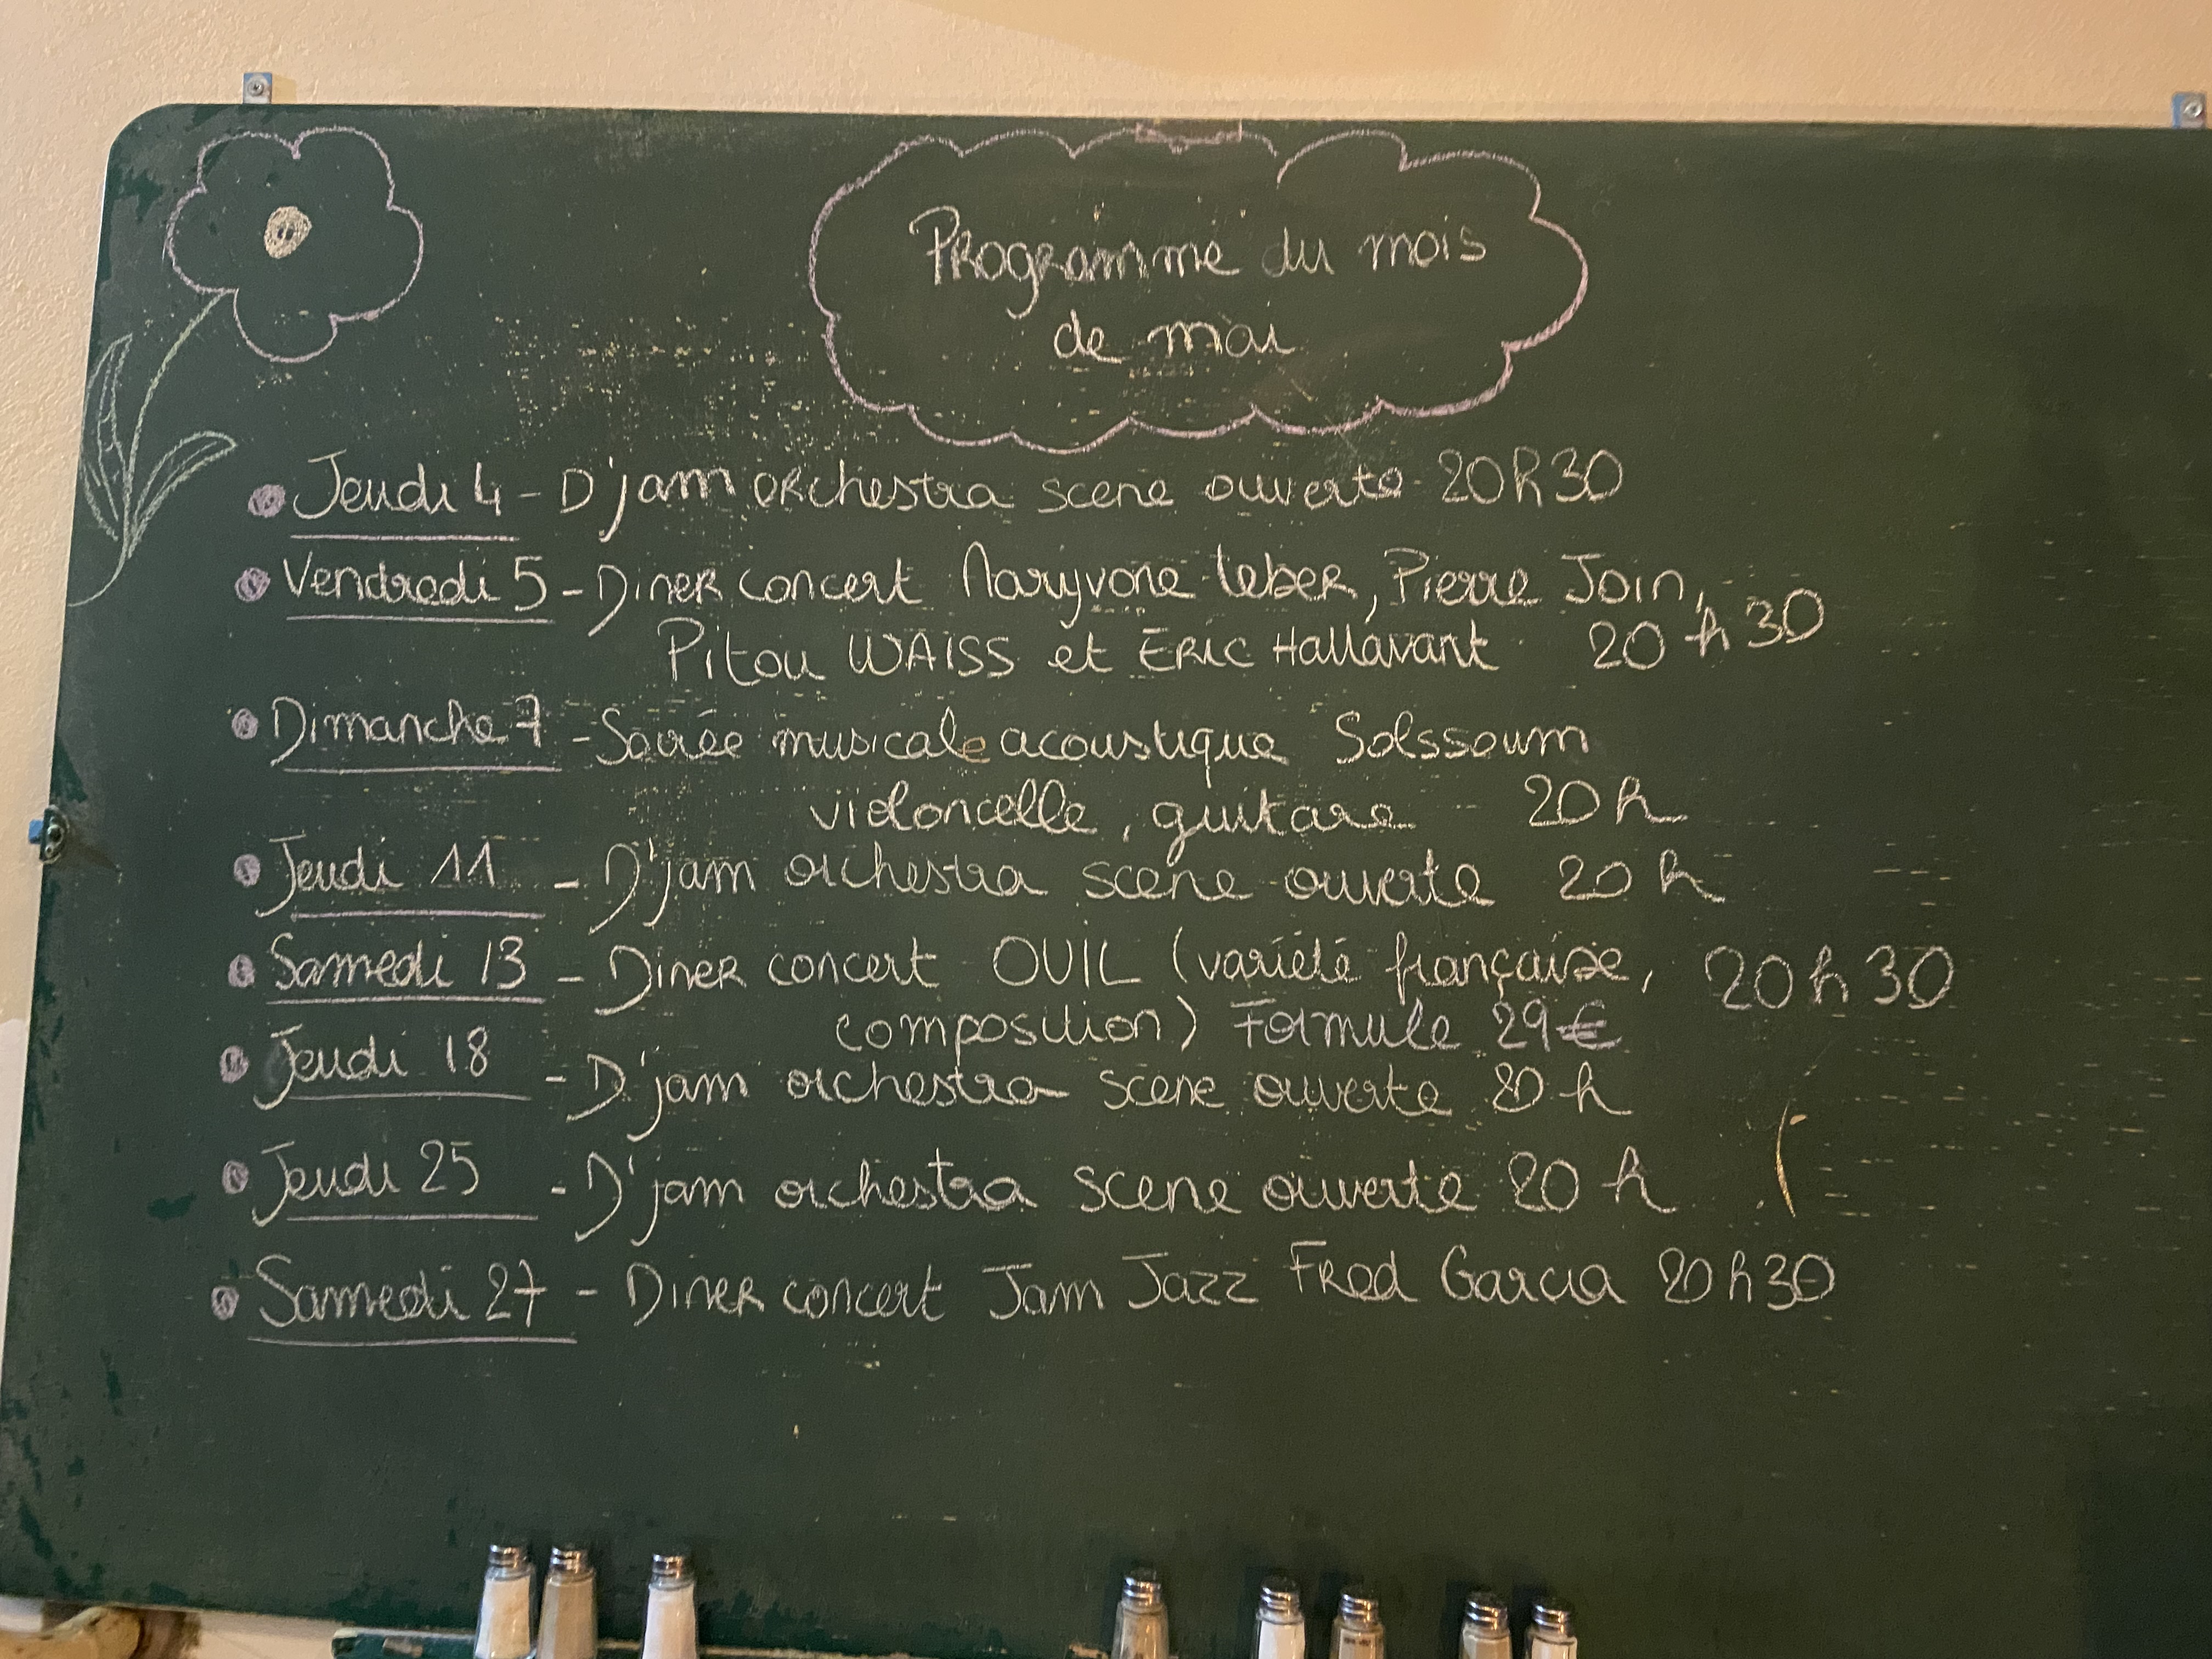 Programme du mois
de mai
Jeudi 4 - D'jam orchestra scene ouverte 20h30
Vendredi 5 - Diner concert Maryvone leber, Pierre Join,
Pitou WAISS et Eric Hallavant 20h30
Dimanche 7 - Soirée musicale acoustique Solssoum
violoncelle, guitare 20h
Jeudi 11 - D'jam orchestra scene ouverte 20h
Samedi 13 - Diner concert OUIL (variété française, 20h30
composition) Formule 29€
Jeudi 18 - D'jam orchestra scene ouverte 20h
Jeudi 25 - D'jam orchestra scene ouverte 20h
Samedi 27 - Diner concert Jam Jazz Fred Garcia 20h30